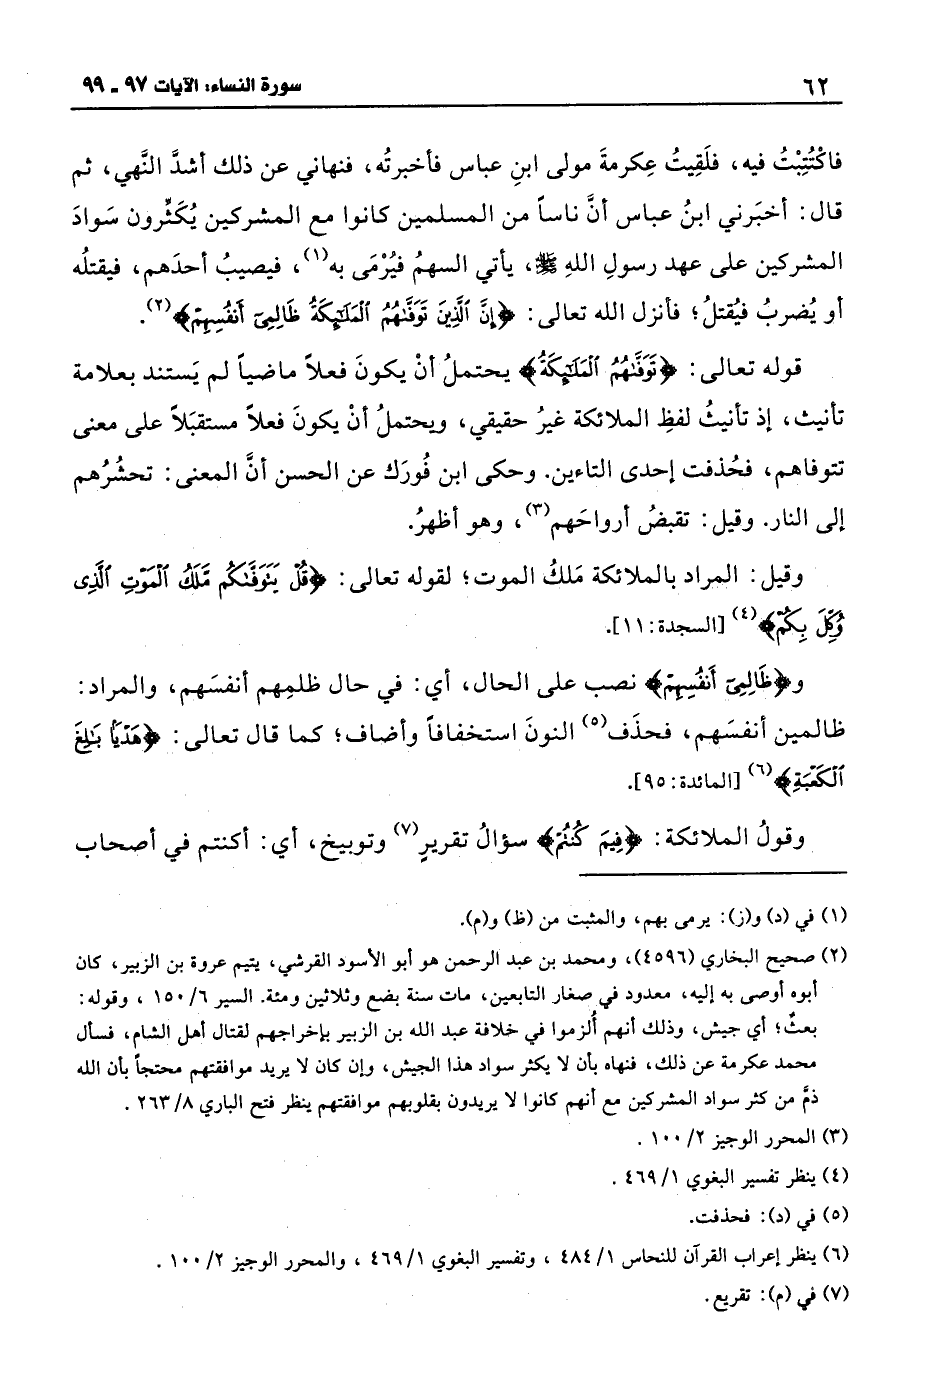 ٦٢ سورة النساء: الآيات ٩٧ ـ ٩٩
فاكْتُتِبْتُ فيه، فلَقِيتُ عِكرمةَ مولى ابنِ عباس فأخبرتُه، فنهاني عن ذلك أشدَّ النَّهي، ثم
قال: أخبَرني ابنُ عباس أنَّ ناساً من المسلمين كانوا مع المشركين يُكَثِّرون سَوادَ
المشركين على عهد رسولِ اللهِ ﷺ، يأتي السهمُ فيُرْمَى به(١)، فيصيبُ أحدَهم، فيقتلُه
أو يُضربُ فيُقتلُ؛ فأنزل الله تعالى: ﴿إِنَّ ٱلَّذِينَ تَوَفَّىٰهُمُ ٱلْمَلَٰٓئِكَةُ ظَالِمِىٓ أَنفُسِهِمْ﴾(٢).
قوله تعالى: ﴿تَوَفَّىٰهُمُ ٱلْمَلَٰٓئِكَةُ﴾ يحتملُ أنْ يكونَ فعلاً ماضياً لم يَستند بعلامة
تأنيث، إذ تأنيثُ لفظِ الملائكة غيرُ حقيقي، ويحتملُ أنْ يكونَ فعلاً مستقبَلاً على معنى
تتوفاهم، فحُذفت إحدى التاءين. وحكى ابن فُورَك عن الحسن أنَّ المعنى: تحشُرُهم
إلى النار. وقيل: تقبضُ أرواحَهم(٣)، وهو أظهرُ.
وقيل: المراد بالملائكة مَلكُ الموت؛ لقوله تعالى: ﴿قُلْ يَتَوَفَّىٰكُم مَّلَكُ ٱلْمَوْتِ ٱلَّذِى
وُكِّلَ بِكُمْ﴾(٤) [السجدة: ١١].
و﴿ظَالِمِىٓ أَنفُسِهِمْ﴾ نصب على الحال، أي: في حال ظلمِهم أنفسَهم، والمراد:
ظالمين أنفسَهم، فحذَف(٥) النونَ استخفافاً وأضاف؛ كما قال تعالى: ﴿هَدْيًۢا بَٰلِغَ
ٱلْكَعْبَةِ﴾(٦) [المائدة: ٩٥].
وقولُ الملائكة: ﴿فِيمَ كُنتُمْ﴾ سؤالُ تقريرٍ(٧) وتوبيخ، أي: أكنتم في أصحاب
(١) في (د) و(ز): يرمى بهم، والمثبت من (ظ) و(م).
(٢) صحيح البخاري (٤٥٩٦)، ومحمد بن عبد الرحمن هو أبو الأسود القرشي، يتيم عروة بن الزبير، كان
أبوه أوصى به إليه، معدود في صغار التابعين، مات سنة بضع وثلاثين ومئة. السير ٦/ ١٥٠ ، وقوله:
بعثٌ؛ أي جيش، وذلك أنهم أُلزموا في خلافة عبد الله بن الزبير بإخراجهم لقتال أهل الشام، فسأل
محمد عكرمة عن ذلك، فنهاه بأن لا يكثر سواد هذا الجيش، وإن كان لا يريد موافقتهم محتجاً بأن الله
ذمَّ من كثر سواد المشركين مع أنهم كانوا لا يريدون بقلوبهم موافقتهم ينظر فتح الباري ٨/ ٢٦٣ .
(٣) المحرر الوجيز ٢/ ١٠٠ .
(٤) ينظر تفسير البغوي ١/ ٤٦٩ .
(٥) في (د): فحذفت.
(٦) ينظر إعراب القرآن للنحاس ١/ ٤٨٤ ، وتفسير البغوي ١/ ٤٦٩ ، والمحرر الوجيز ٢/ ١٠٠ .
(٧) في (م): تقريع.